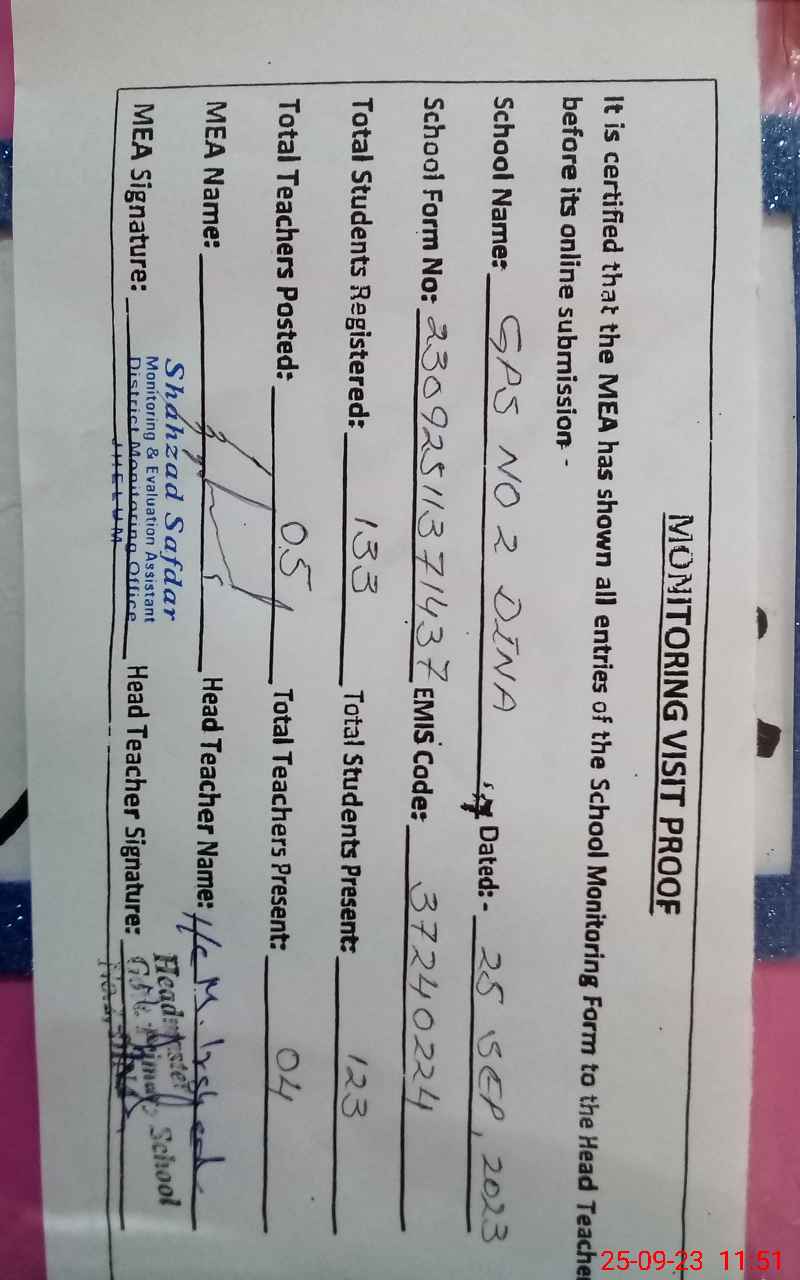 MONITORING VISIT PROOF
It is certified that the MEA has shown all entries of the School Monitoring Form to the Head Teacher
before its online submission -
School Name:- GPS NO 2 DINA Dated:- 25 SEP, 2023
School Form No: 230925113714 37 EMIS Code: 37240224
Total Students Registered: 133 Total Students Present: 123
Total Teachers Posted: 05 Total Teachers Present: 04
MEA Name: Head Teacher Name: H/C M. Irshad
MEA Signature: Head Teacher Signature:
Shahzad Safdar
Monitoring & Evaluation Assistant
District Monitoring Office
JHELUM
Headmaster
Govt. Primary School
No. 2 DINA
25-09-23 11:51